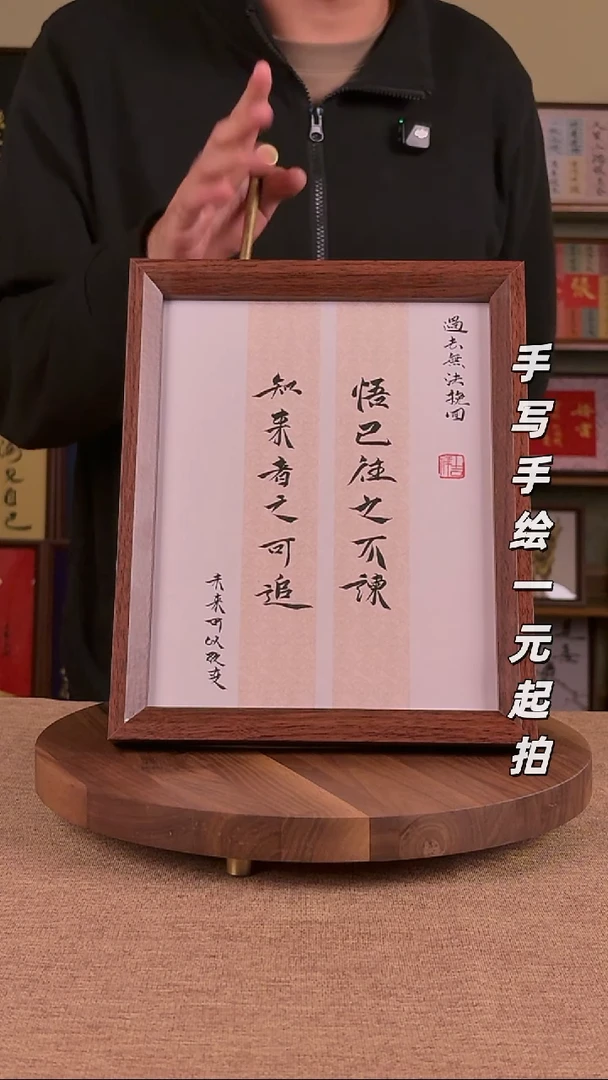 過去無法挽回
悟已往之不諫
知来者之可追
未来可以改变
手写手绘一元起拍